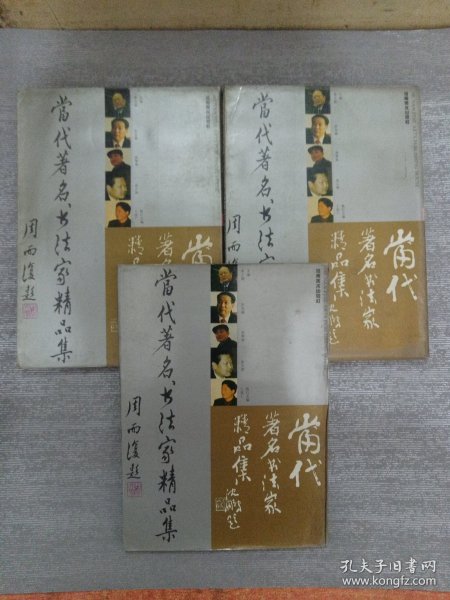 當代著名书法家精品集
周而復题
當代
著名书法家
精品集
當代著名书法家精品集
周而復
當代
著名书法家
精品集
沈鹏题
當代著名书法家精品集
周而復题
當代
著名书法家
精品集
沈鹏题
孔夫子旧书网
www.kongfz.com